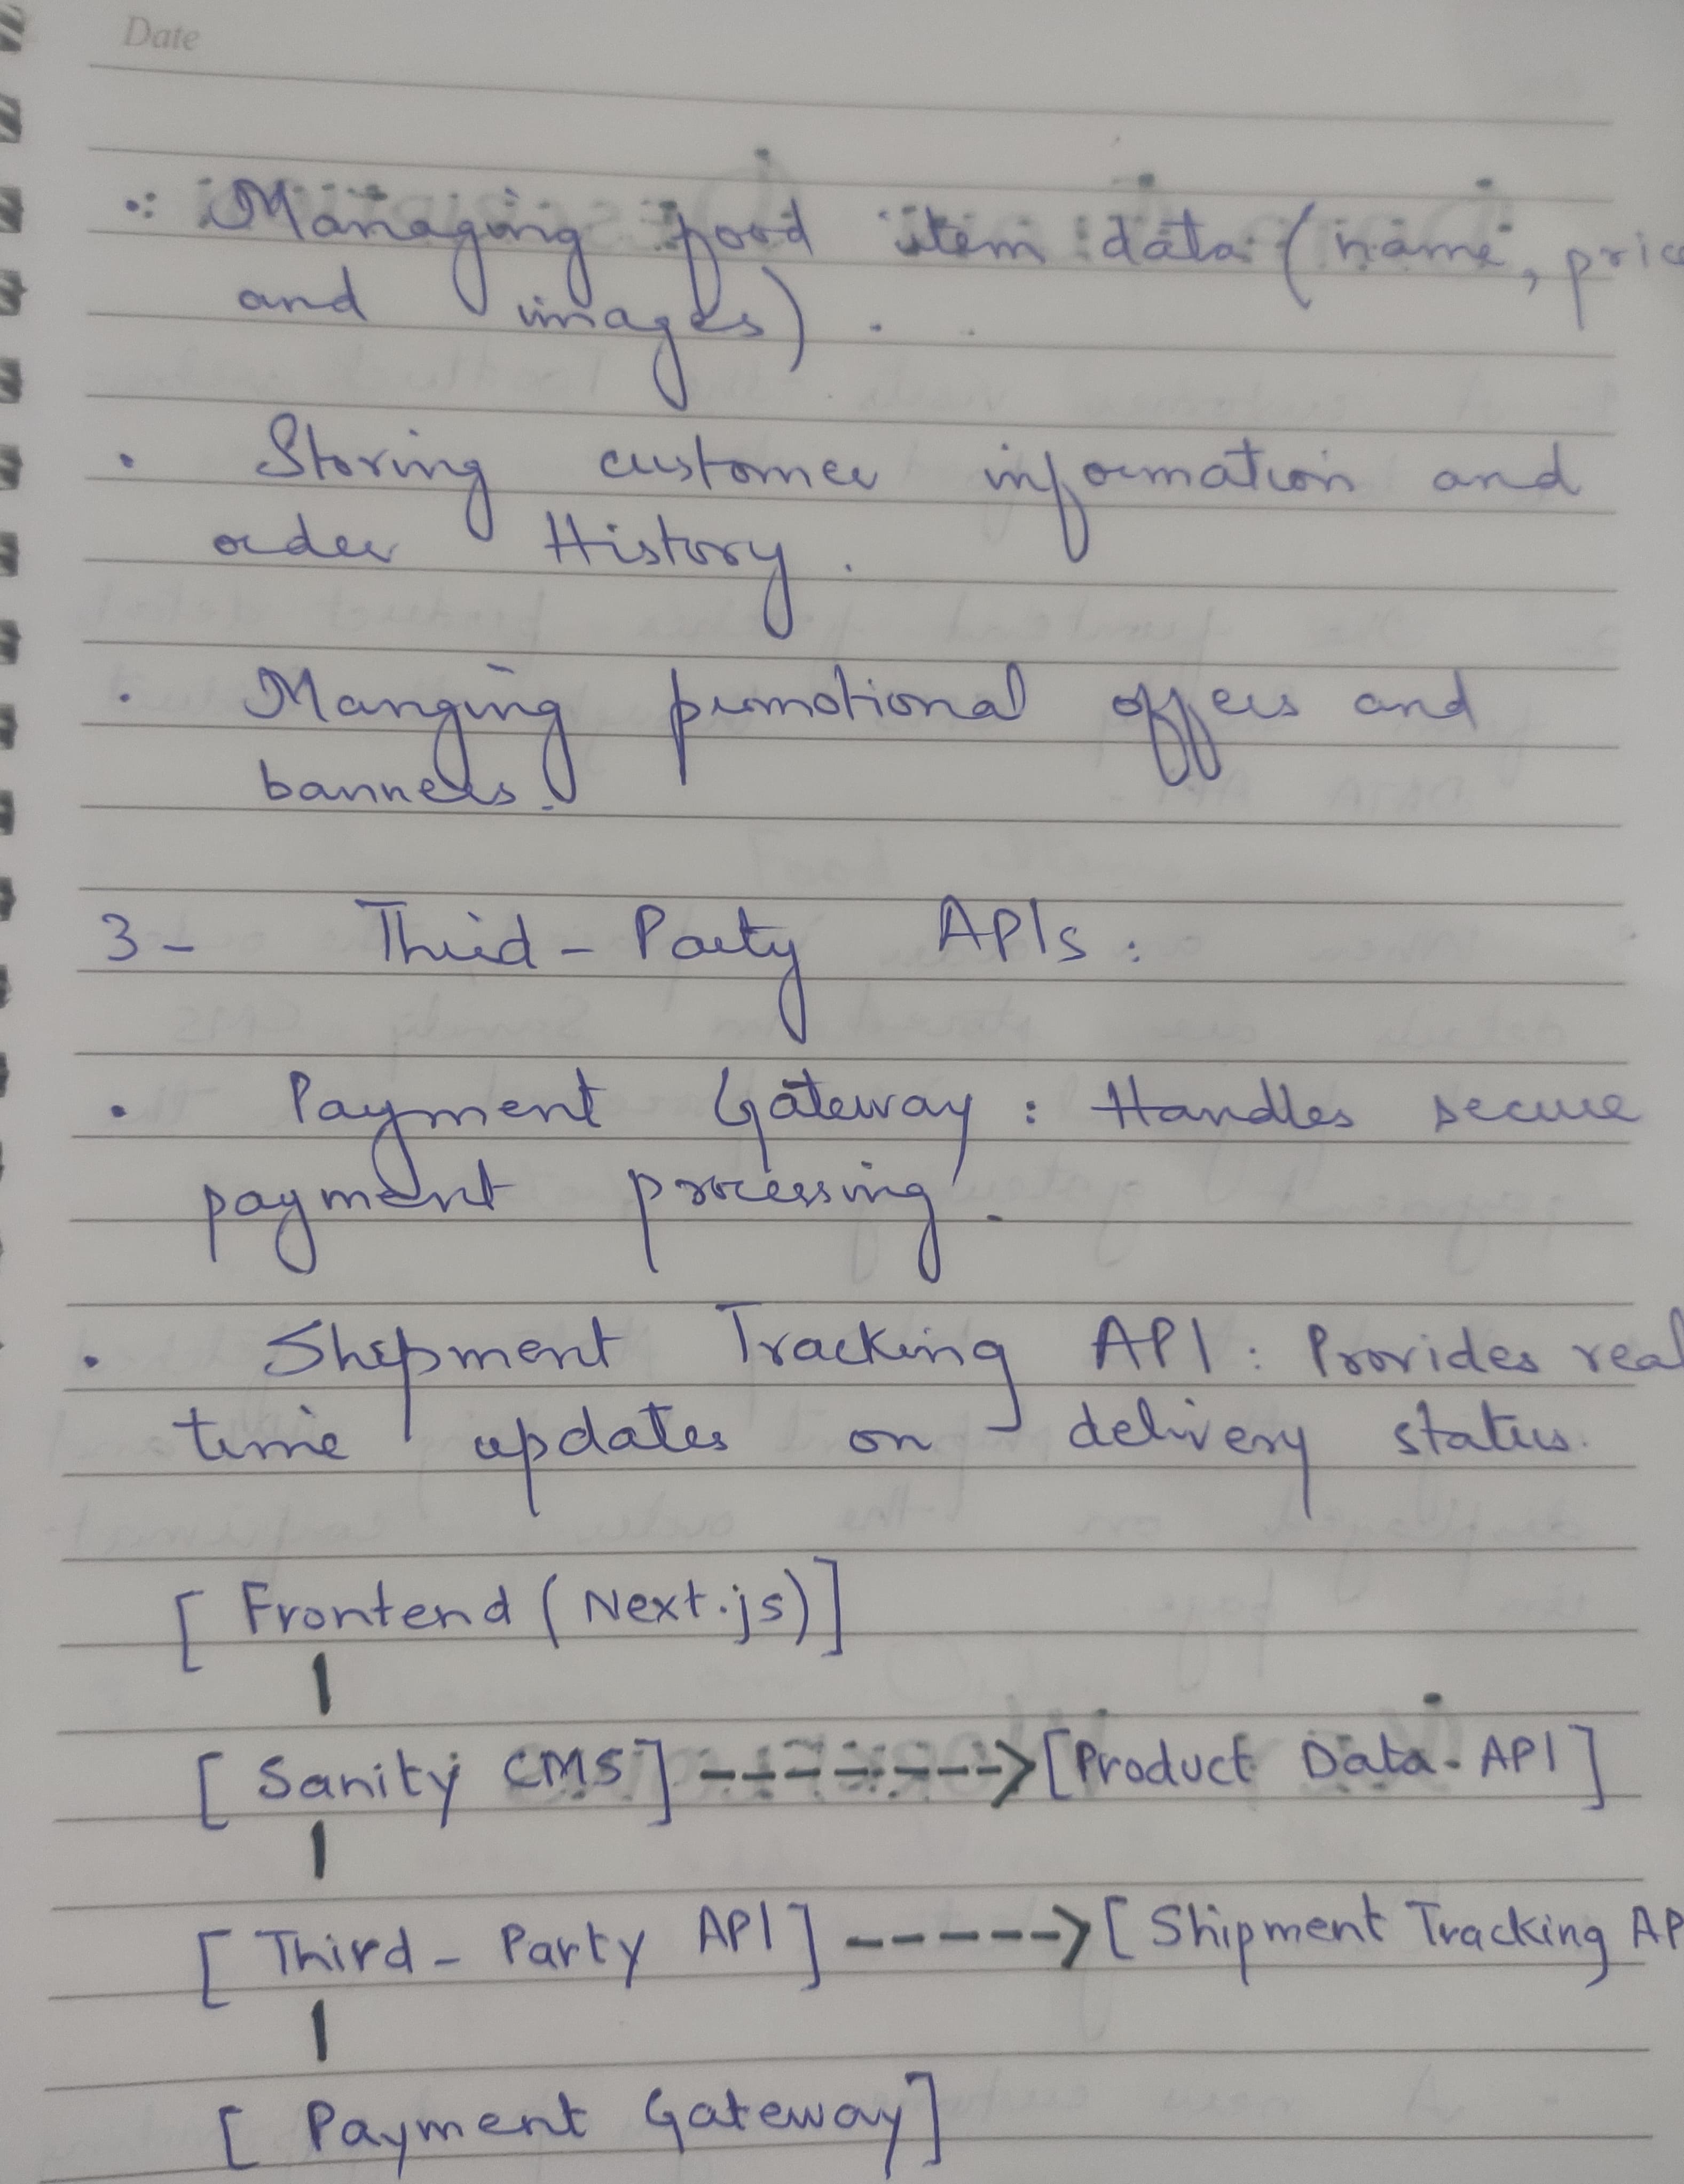 Date
• Managing food item data (name, pric
and images).
• Storing customer information and
order History.
• Manging pumotional offers and
banners.
3- Third-Party APIs:
• Payment Gateway: Handles secure
payment processing.
• Shipment Tracking API: Provides real
time updates on delivery status.
[Frontend (Next.js)]
|
[Sanity CMS] -------->[Product Data-API]
|
[Third-Party API] ----->[Shipment Tracking AP
|
[Payment Gateway]